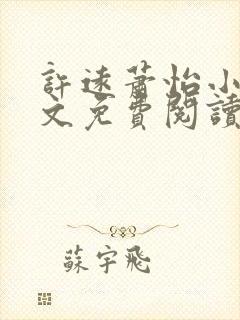 許遠蕭怡小
文免費閱讀
蘇宇飛